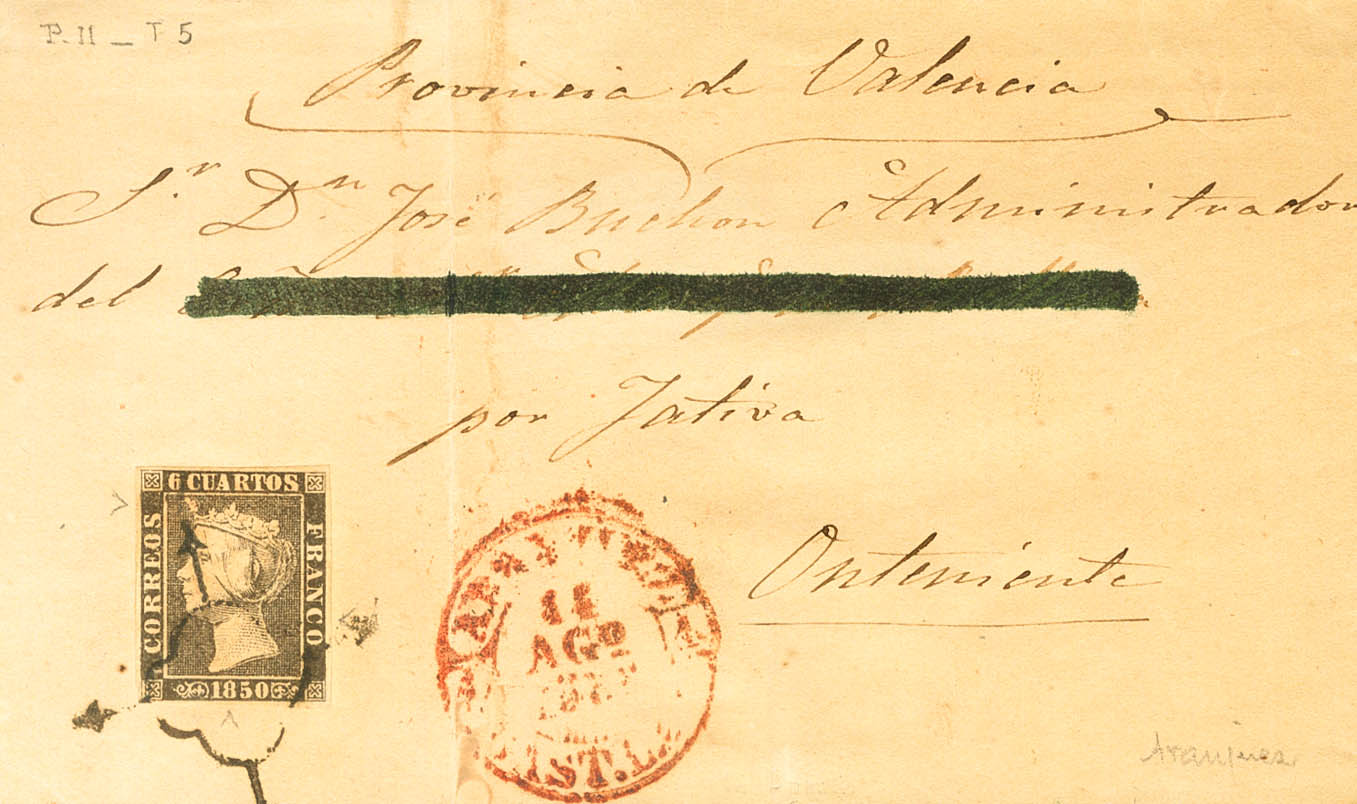 P. II _ T 5
Provincia de Valencia
Sr. Dn. José Buchon Administrador
del
por Jativa
Onteniente
6 CUARTOS
CORREOS
FRANCO
1850
11
AGO
Aranjuez